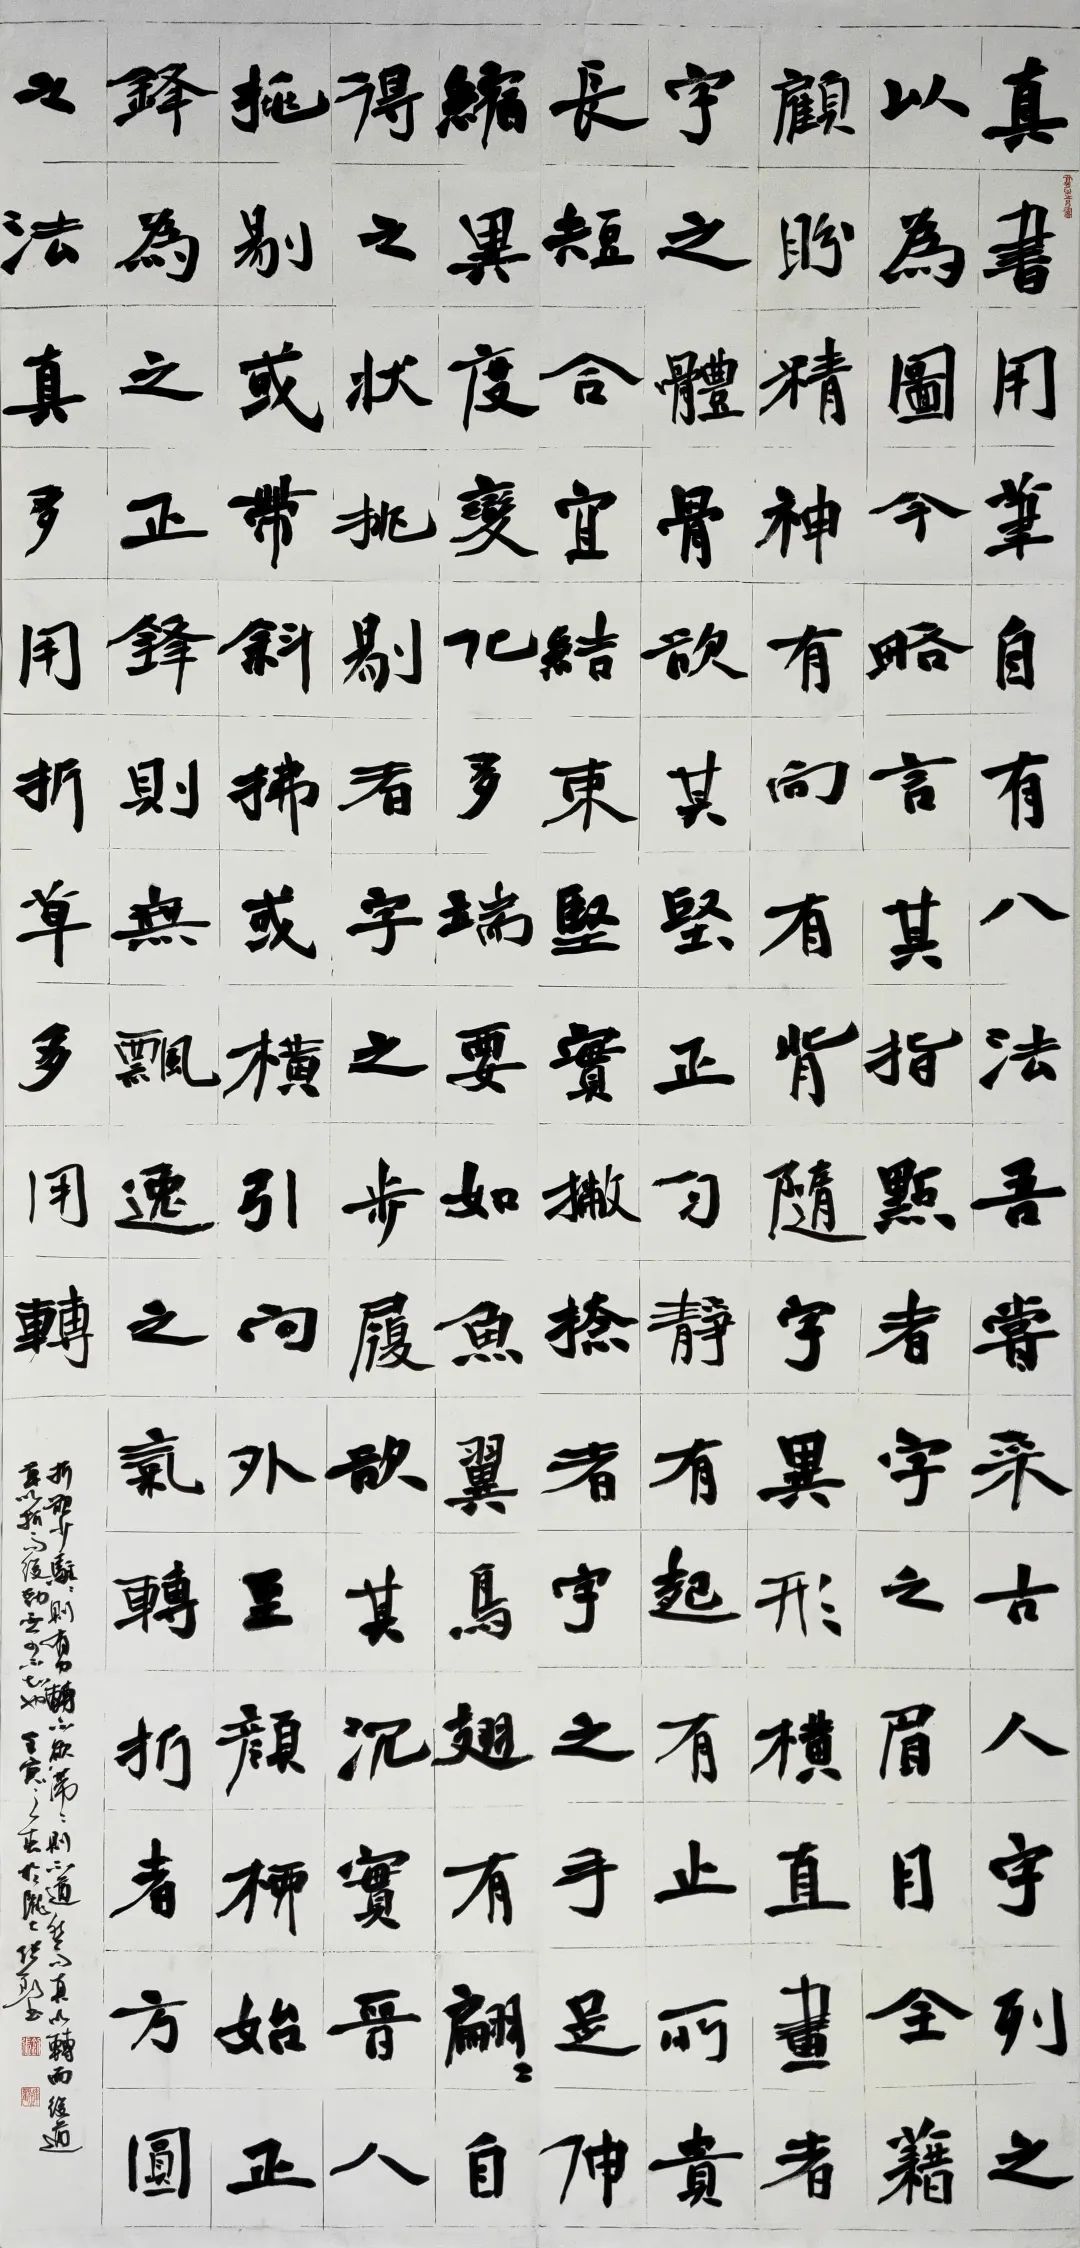 真書用筆自有八法吾嘗采古人字列之
以為圖今略言其指點者字之眉目全藉
顧盼精神有向有背隨字異形橫直畫者
字之體骨欲其堅正勻靜有起有止所貴
長短合宜結東堅實撇捺者字之手足伸
縮異度變化多瑞要如魚翼鳥翅有翩〻自
得之狀挑剔者字之步履欲其沉實晉人
挑剔或帶斜拂或橫引向外至顏柳始正
鋒為之正鋒則無飄逸之氣轉折者方圓
之法真多用折草多用轉
折欲少駐〻則有力轉不欲滯〻則不遒然而真以轉而後遒
草以折而後勁不可不知也 壬寅之春於